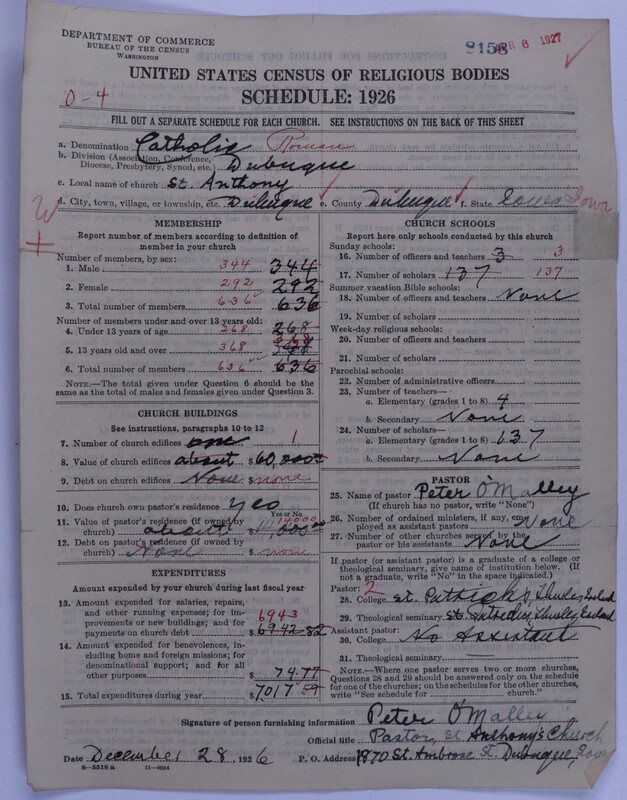 DEPARTMENT OF COMMERCE
BUREAU OF THE CENSUS
WASHINGTON
8158 MAR 8 1927
UNITED STATES CENSUS OF RELIGIOUS BODIES
SCHEDULE: 1926
0-4
FILL OUT A SEPARATE SCHEDULE FOR EACH CHURCH. SEE INSTRUCTIONS ON THE BACK OF THIS SHEET
a. Denomination Catholic Roman
b. Division (Association, Conference, Diocese, Presbytery, Synod, etc.) Dubuque
c. Local name of church St. Anthony
d. City, town, village, or township, etc. Dubuque e. County Dubuque f. State Iowa Iowa
MEMBERSHIP
Report number of members according to definition of
member in your church
Number of members, by sex:
1. Male 344 344
2. Female 292 292
3. Total number of members 636 636
Number of members under and over 13 years old:
4. Under 13 years of age 268 268
5. 13 years old and over 368
6. Total number of members 636 636
NOTE.—The total given under Question 6 should be
the same as the total of males and females given under Question 3.
CHURCH BUILDINGS
See instructions, paragraphs 10 to 12
7. Number of church edifices one 1
8. Value of church edifices about $60,000.00
9. Debt on church edifices None $ none
10. Does church own pastor's residence yes
Yes or No
11. Value of pastor's residence (if owned by
church) about $ 000.00
12. Debt on pastor's residence (if owned by
church) None $ none
EXPENDITURES
Amount expended by your church during last fiscal year
13. Amount expended for salaries, repairs,
and other running expenses; for improvements or new buildings; and for
payments on church debt $ 6942.82 6943
14. Amount expended for benevolences,
including home and foreign missions; for
denominational support; and for all
other purposes $ 74.77
15. Total expenditures during year $ 7017.59
CHURCH SCHOOLS
Report here only schools conducted by this church
Sunday schools:
16. Number of officers and teachers 3 3
17. Number of scholars 137 137
Summer vacation Bible schools:
18. Number of officers and teachers None
19. Number of scholars
Week-day religious schools:
20. Number of officers and teachers
21. Number of scholars
Parochial schools:
22. Number of administrative officers
23. Number of teachers—
a. Elementary (grades 1 to 8) 4
b. Secondary None
24. Number of scholars—
a. Elementary (grades 1 to 8) 137
b. Secondary None
PASTOR
25. Name of pastor Peter O'Malley
(If church has no pastor, write "None")
26. Number of ordained ministers, if any, employed as assistant pastors None
27. Number of other churches served by the
pastor or his assistants None
If pastor (or assistant pastor) is a graduate of a college or
theological seminary, give name of institution below. (If
not a graduate, write "No" in the space indicated.)
Pastor: 2
28. College St. Patrick's,
29. Theological seminary St.
Assistant pastor:
30. College No Assistant
31. Theological seminary
NOTE.—Where one pastor serves two or more churches,
Questions 28 and 29 should be answered only on the schedule
for one of the churches; on the schedules for the other churches,
write "See schedule for church."
Signature of person furnishing information Peter O'Malley
Official title Pastor, St Anthony's Church
Date December 28, 1926 P. O. Address 1870 St. Ambrose St. Dubuque, Iowa
8—5518 a 11—9034